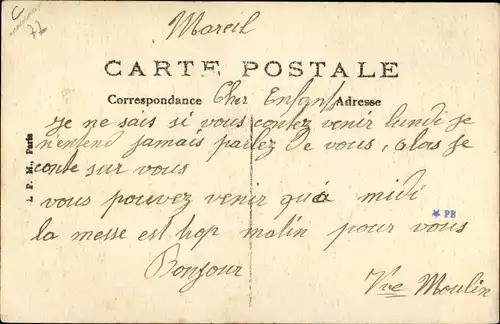 77
Mareil
CARTE POSTALE
Correspondance Cher Enfants Adresse
Je ne sais si vous contez venir lundi je
n'entend jamais parlez de vous, alors je
conte sur vous
vous pouvez venir qu'a midi
la messe est trop matin pour vous
Bonjour
Vve Moulin
I. P. M., Paris
* PB